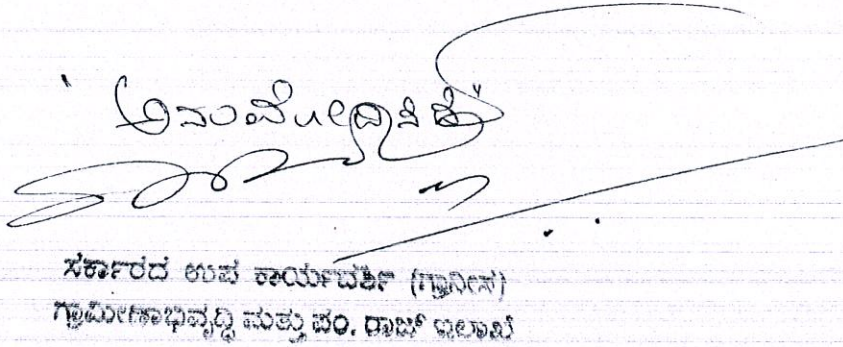 ಅನುಮೋದಿಸಿದೆ
ಸರ್ಕಾರದ ಉಪ ಕಾರ್ಯದರ್ಶಿ (ಗ್ರಾನೀಸ)
ಗ್ರಾಮೀಣಾಭಿವೃದ್ಧಿ ಮತ್ತು ಪಂ. ರಾಜ್ ಇಲಾಖೆ